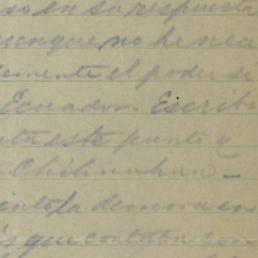 so en su respuesta
aunque no he nea
lemente el poder se
Ecuador. Escribo
este punto y
Chihuahua –
la demora en
que contaba con